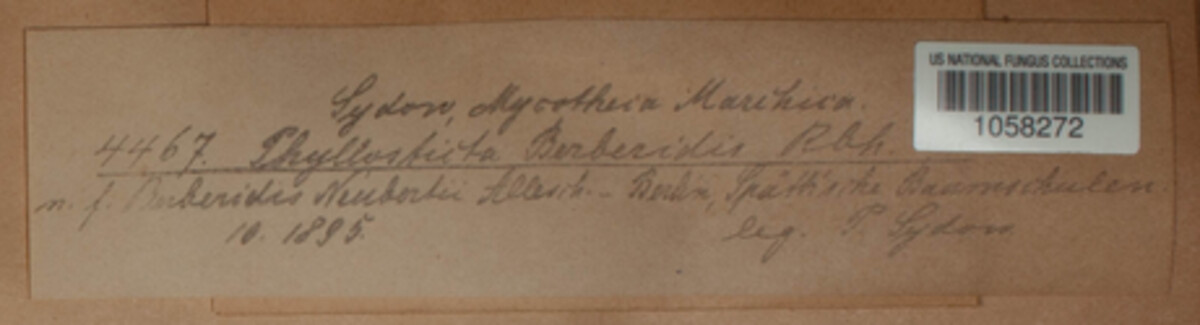 US NATIONAL FUNGUS COLLECTIONS
1058272
Sydow, Mycotheca Marchica.
4467. Phyllosticta Berberidis Rbh.
n. f. Berberidis Neubertii Allesch. - Berlin, Späth'sche Baumschulen.
10. 1895. leg. P. Sydow